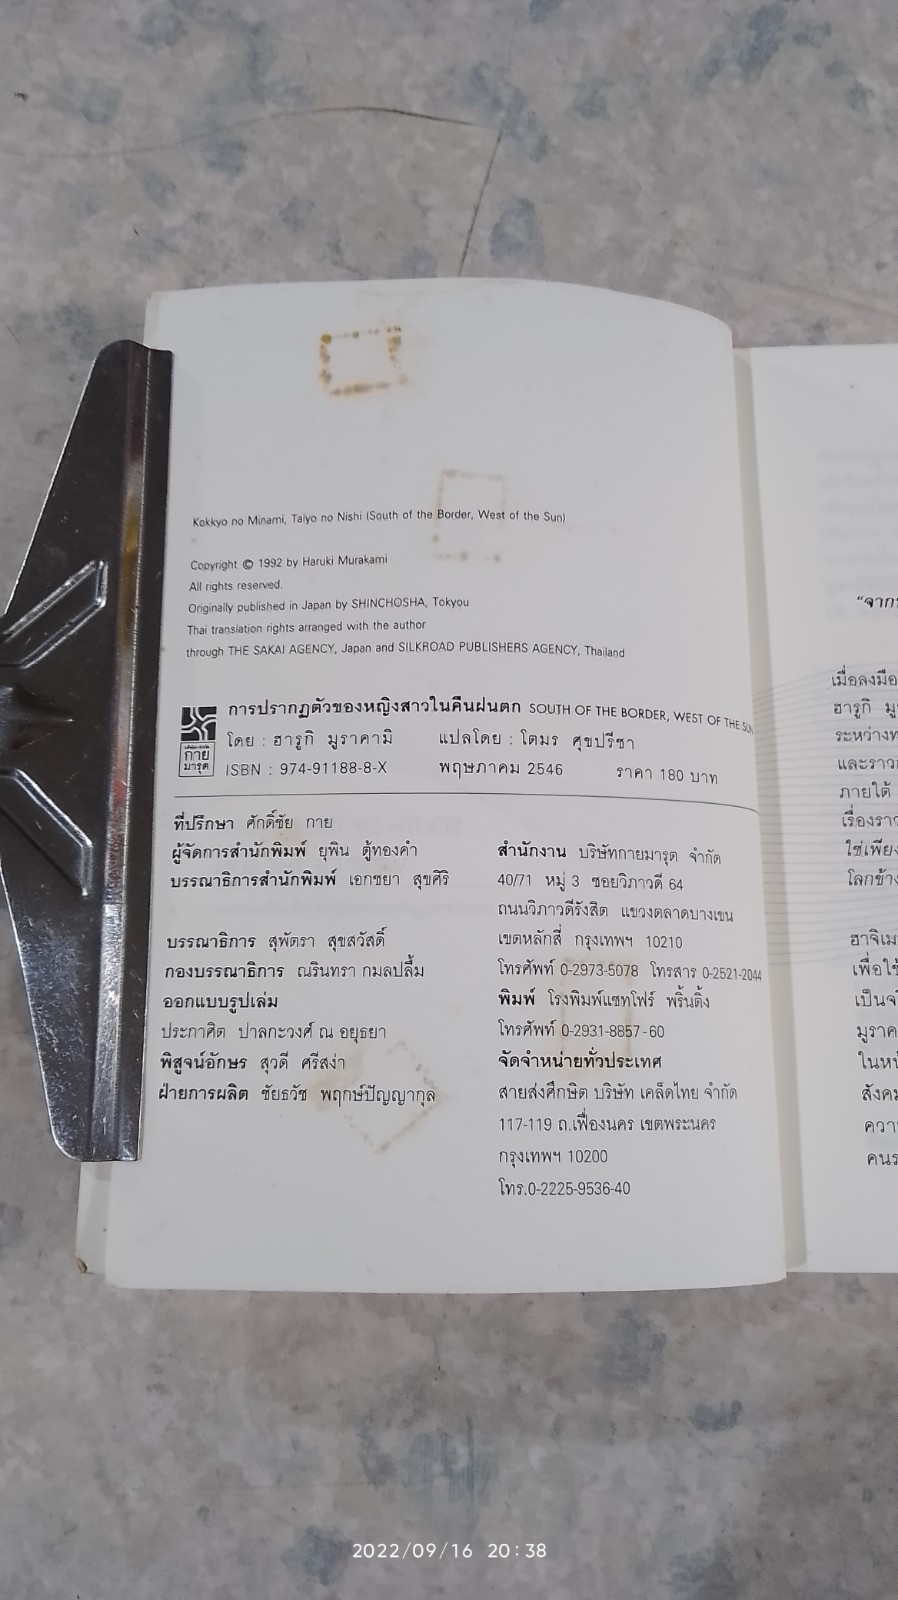 Kokkyo no Minami, Taiyo no Nishi (South of the Border, West of the Sun)
Copyright © 1992 by Haruki Murakami
All rights reserved.
Originally published in Japan by SHINCHOSHA, Tokyou
Thai translation rights arranged with the author
through THE SAKAI AGENCY, Japan and SILKROAD PUBLISHERS AGENCY, Thailand
การปรากฏตัวของหญิงสาวในคืนฝนตก SOUTH OF THE BORDER, WEST OF THE SUN
โดย : ฮารูกิ มูราคามิ แปลโดย : โตมร ศุขปรีชา
ISBN : 974-91188-8-X พฤษภาคม 2546 ราคา 180 บาท
กาย
มารุต
ที่ปรึกษา ศักดิ์ชัย กาย
ผู้จัดการสำนักพิมพ์ ยุพิน ตู้ทองคำ
บรรณาธิการสำนักพิมพ์ เอกชยา สุขศิริ
บรรณาธิการ สุพัตรา สุขสวัสดิ์
กองบรรณาธิการ ณรินทรา กมลปลื้ม
ออกแบบรูปเล่ม
ประกาศิต ปาลกะวงศ์ ณ อยุธยา
พิสูจน์อักษร สุวดี ศรีสง่า
ฝ่ายการผลิต ชัยธวัช พฤกษ์ปัญญากุล
สำนักงาน บริษัทกายมารุต จำกัด
40/71 หมู่ 3 ซอยวิภาวดี 64
ถนนวิภาวดีรังสิต แขวงตลาดบางเขน
เขตหลักสี่ กรุงเทพฯ 10210
โทรศัพท์ 0-2973-5078 โทรสาร 0-2521-2044
พิมพ์ โรงพิมพ์แซทโฟร์ พริ้นติ้ง
โทรศัพท์ 0-2931-8857-60
จัดจำหน่ายทั่วประเทศ
สายส่งศึกษิต บริษัท เคล็ดไทย จำกัด
117-119 ถ.เฟื่องนคร เขตพระนคร
กรุงเทพฯ 10200
โทร.0-2225-9536-40
"จาก
เมื่อลงมือ
ฮารูกิ มู
ระหว่าง
และราว
ภายใต้
เรื่องราว
ใช่เพียง
โลกข้าง
ฮาจิเม
เพื่อใช้
เป็น
มูราค
ในห
สังคม
ควา
คน
2022/09/16 20:38